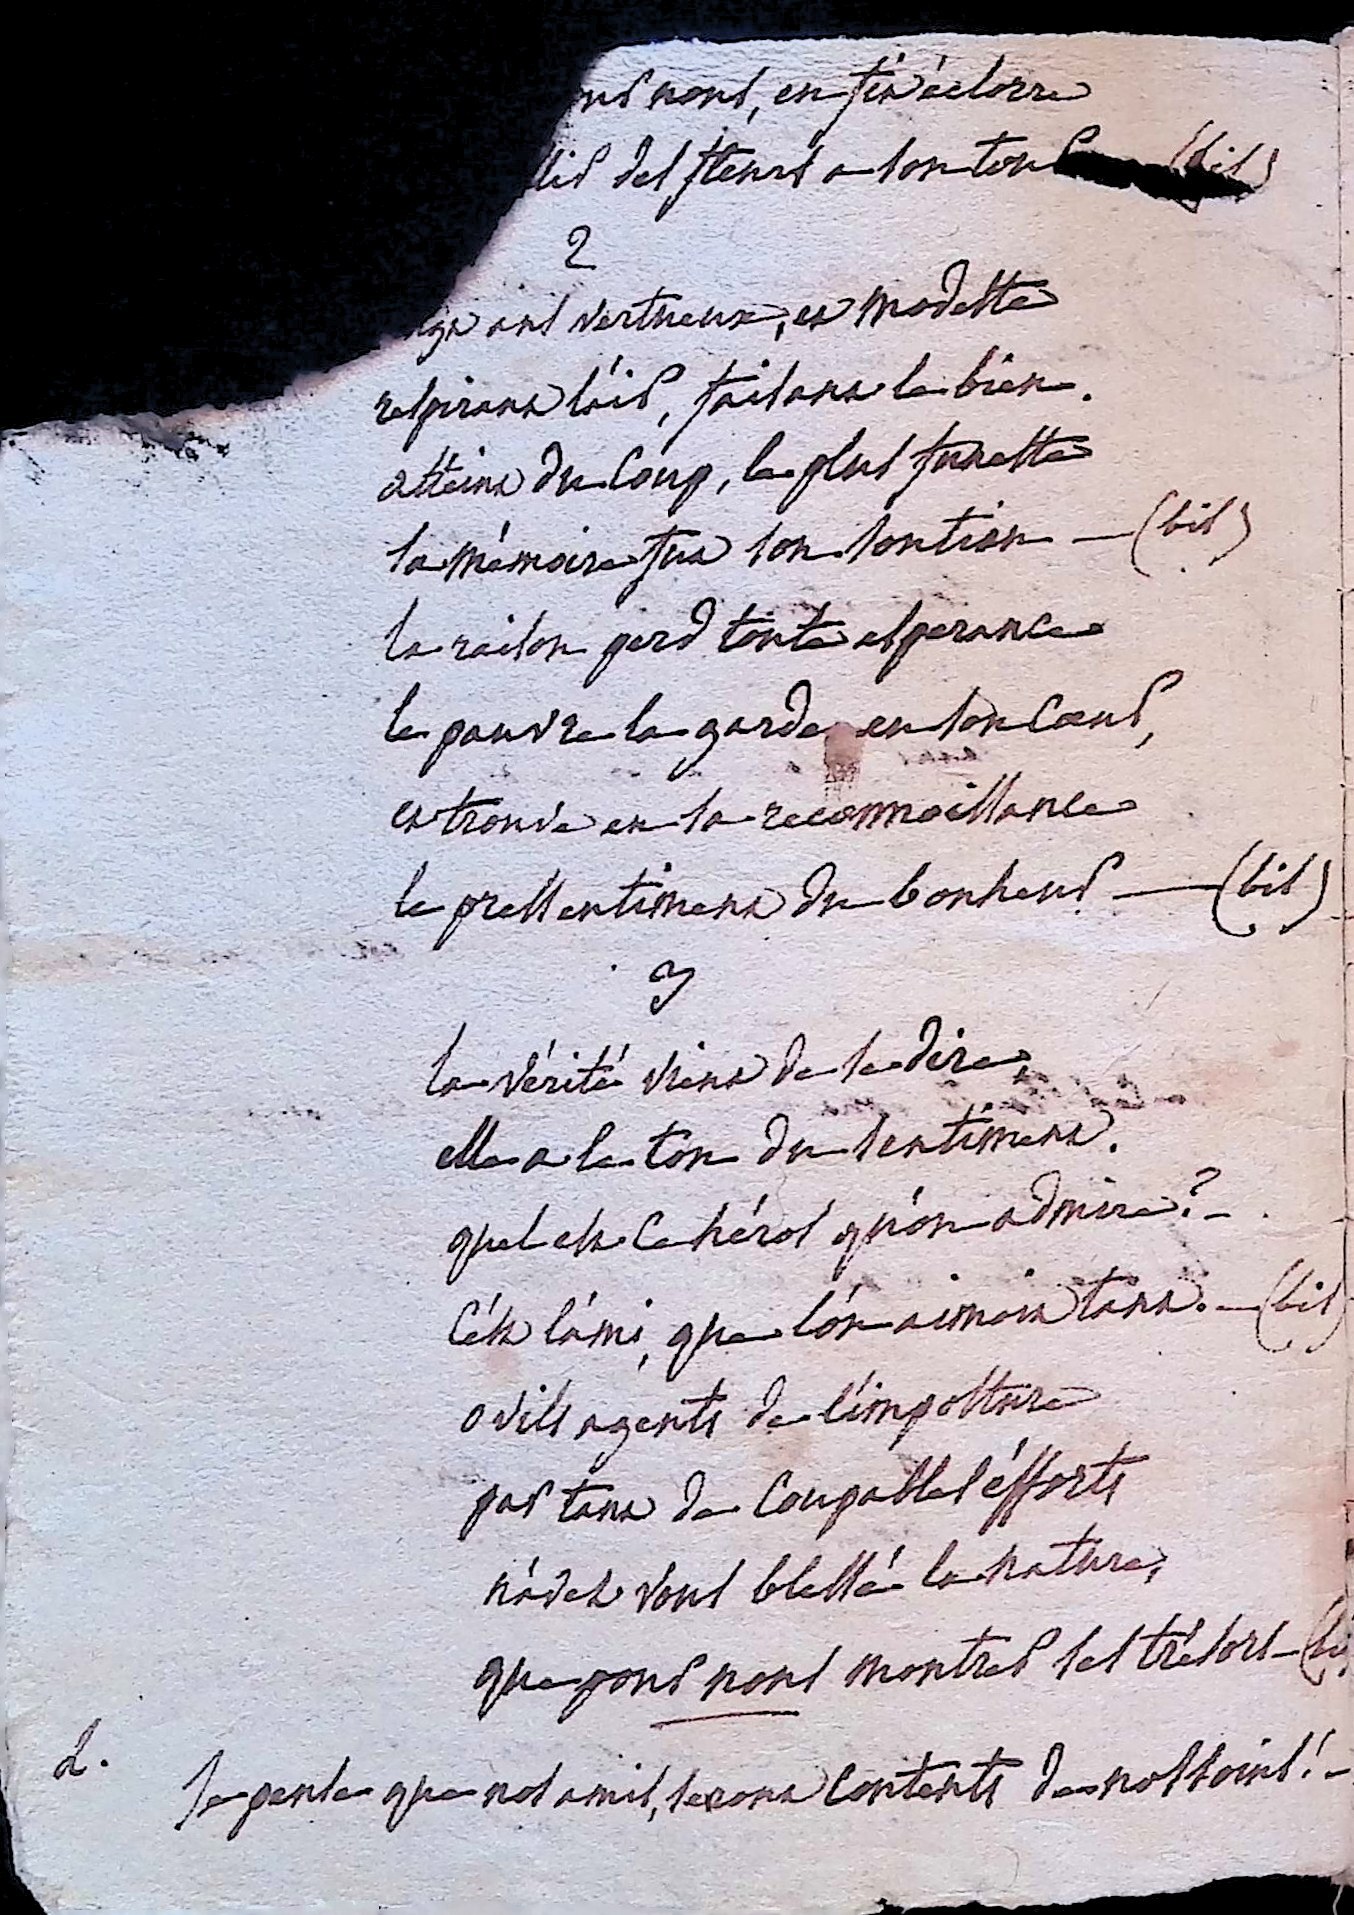 nous, en fit éclorre
des fleurs a son tour (bis)
2
ans vertueux, et modeste
respirant l'air, faisant le bien.
atteint du coup, le plus funeste
sa mémoire fut son soutien — (bis)
la raison perd toute esperance
le pauvre la garde en son coeur,
et trouve en sa reconnoissance
le pressentiment du bonheur — (bis)
3
la vérité vient de le dire,
elle a le ton du sentiment.
quel est ce héros qu'on admire? -
C'ést l'ami, que l'ón aimoit tant. — (bis
o vils agents de l'imposture
par tant de coupables éfforts
n'avez vous blessé la nature,
que pour nous montrer ses trésors — (bis
d.
Je pense que nos amis, seront contents de nos soins! -